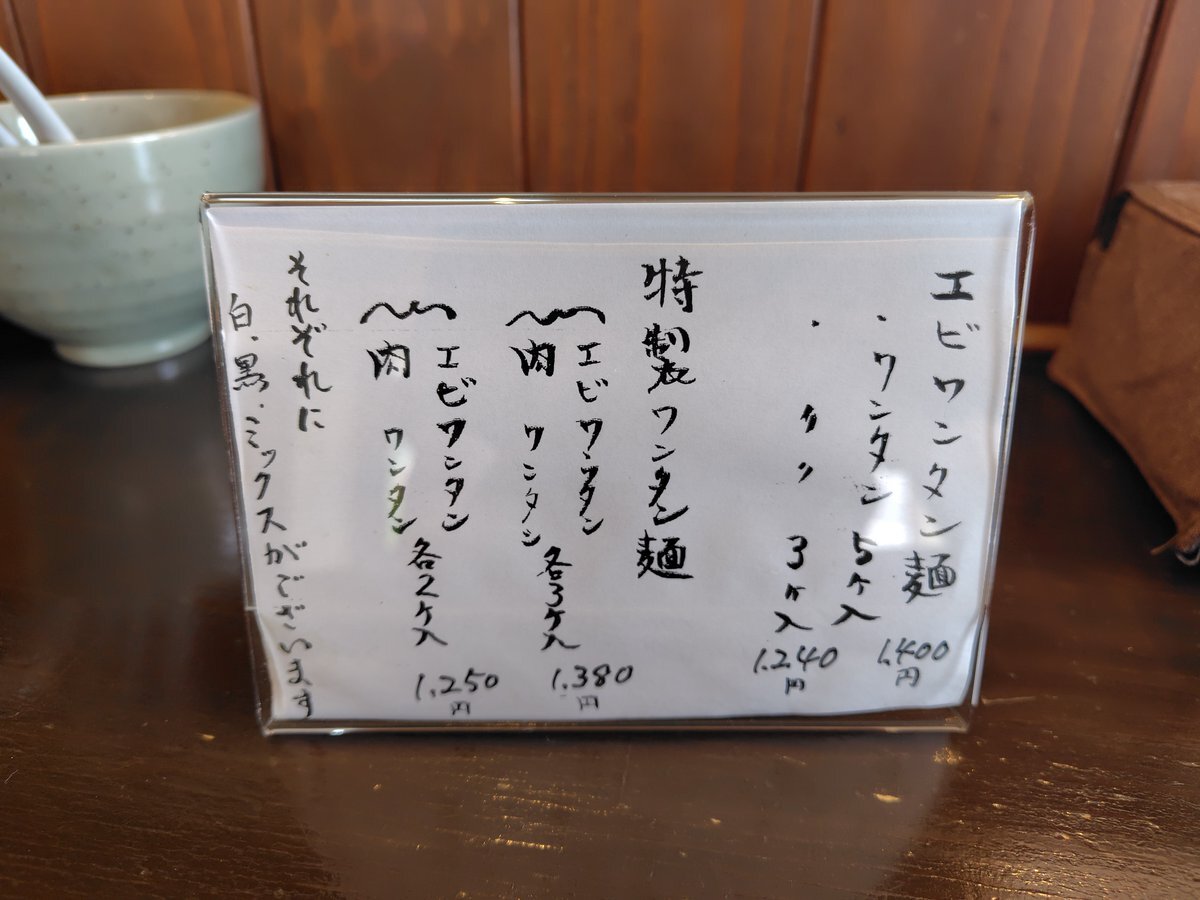 エビワンタン麺
・ワンタン 5ヶ入 1,400円
・〃〃 3ヶ入 1,240円
特製ワンタン麺
エビワンタン
肉ワンタン
各3ヶ入 1,380円
エビワンタン
肉ワンタン
各2ヶ入 1,250円
それぞれに
白・黒・ミックスがございます